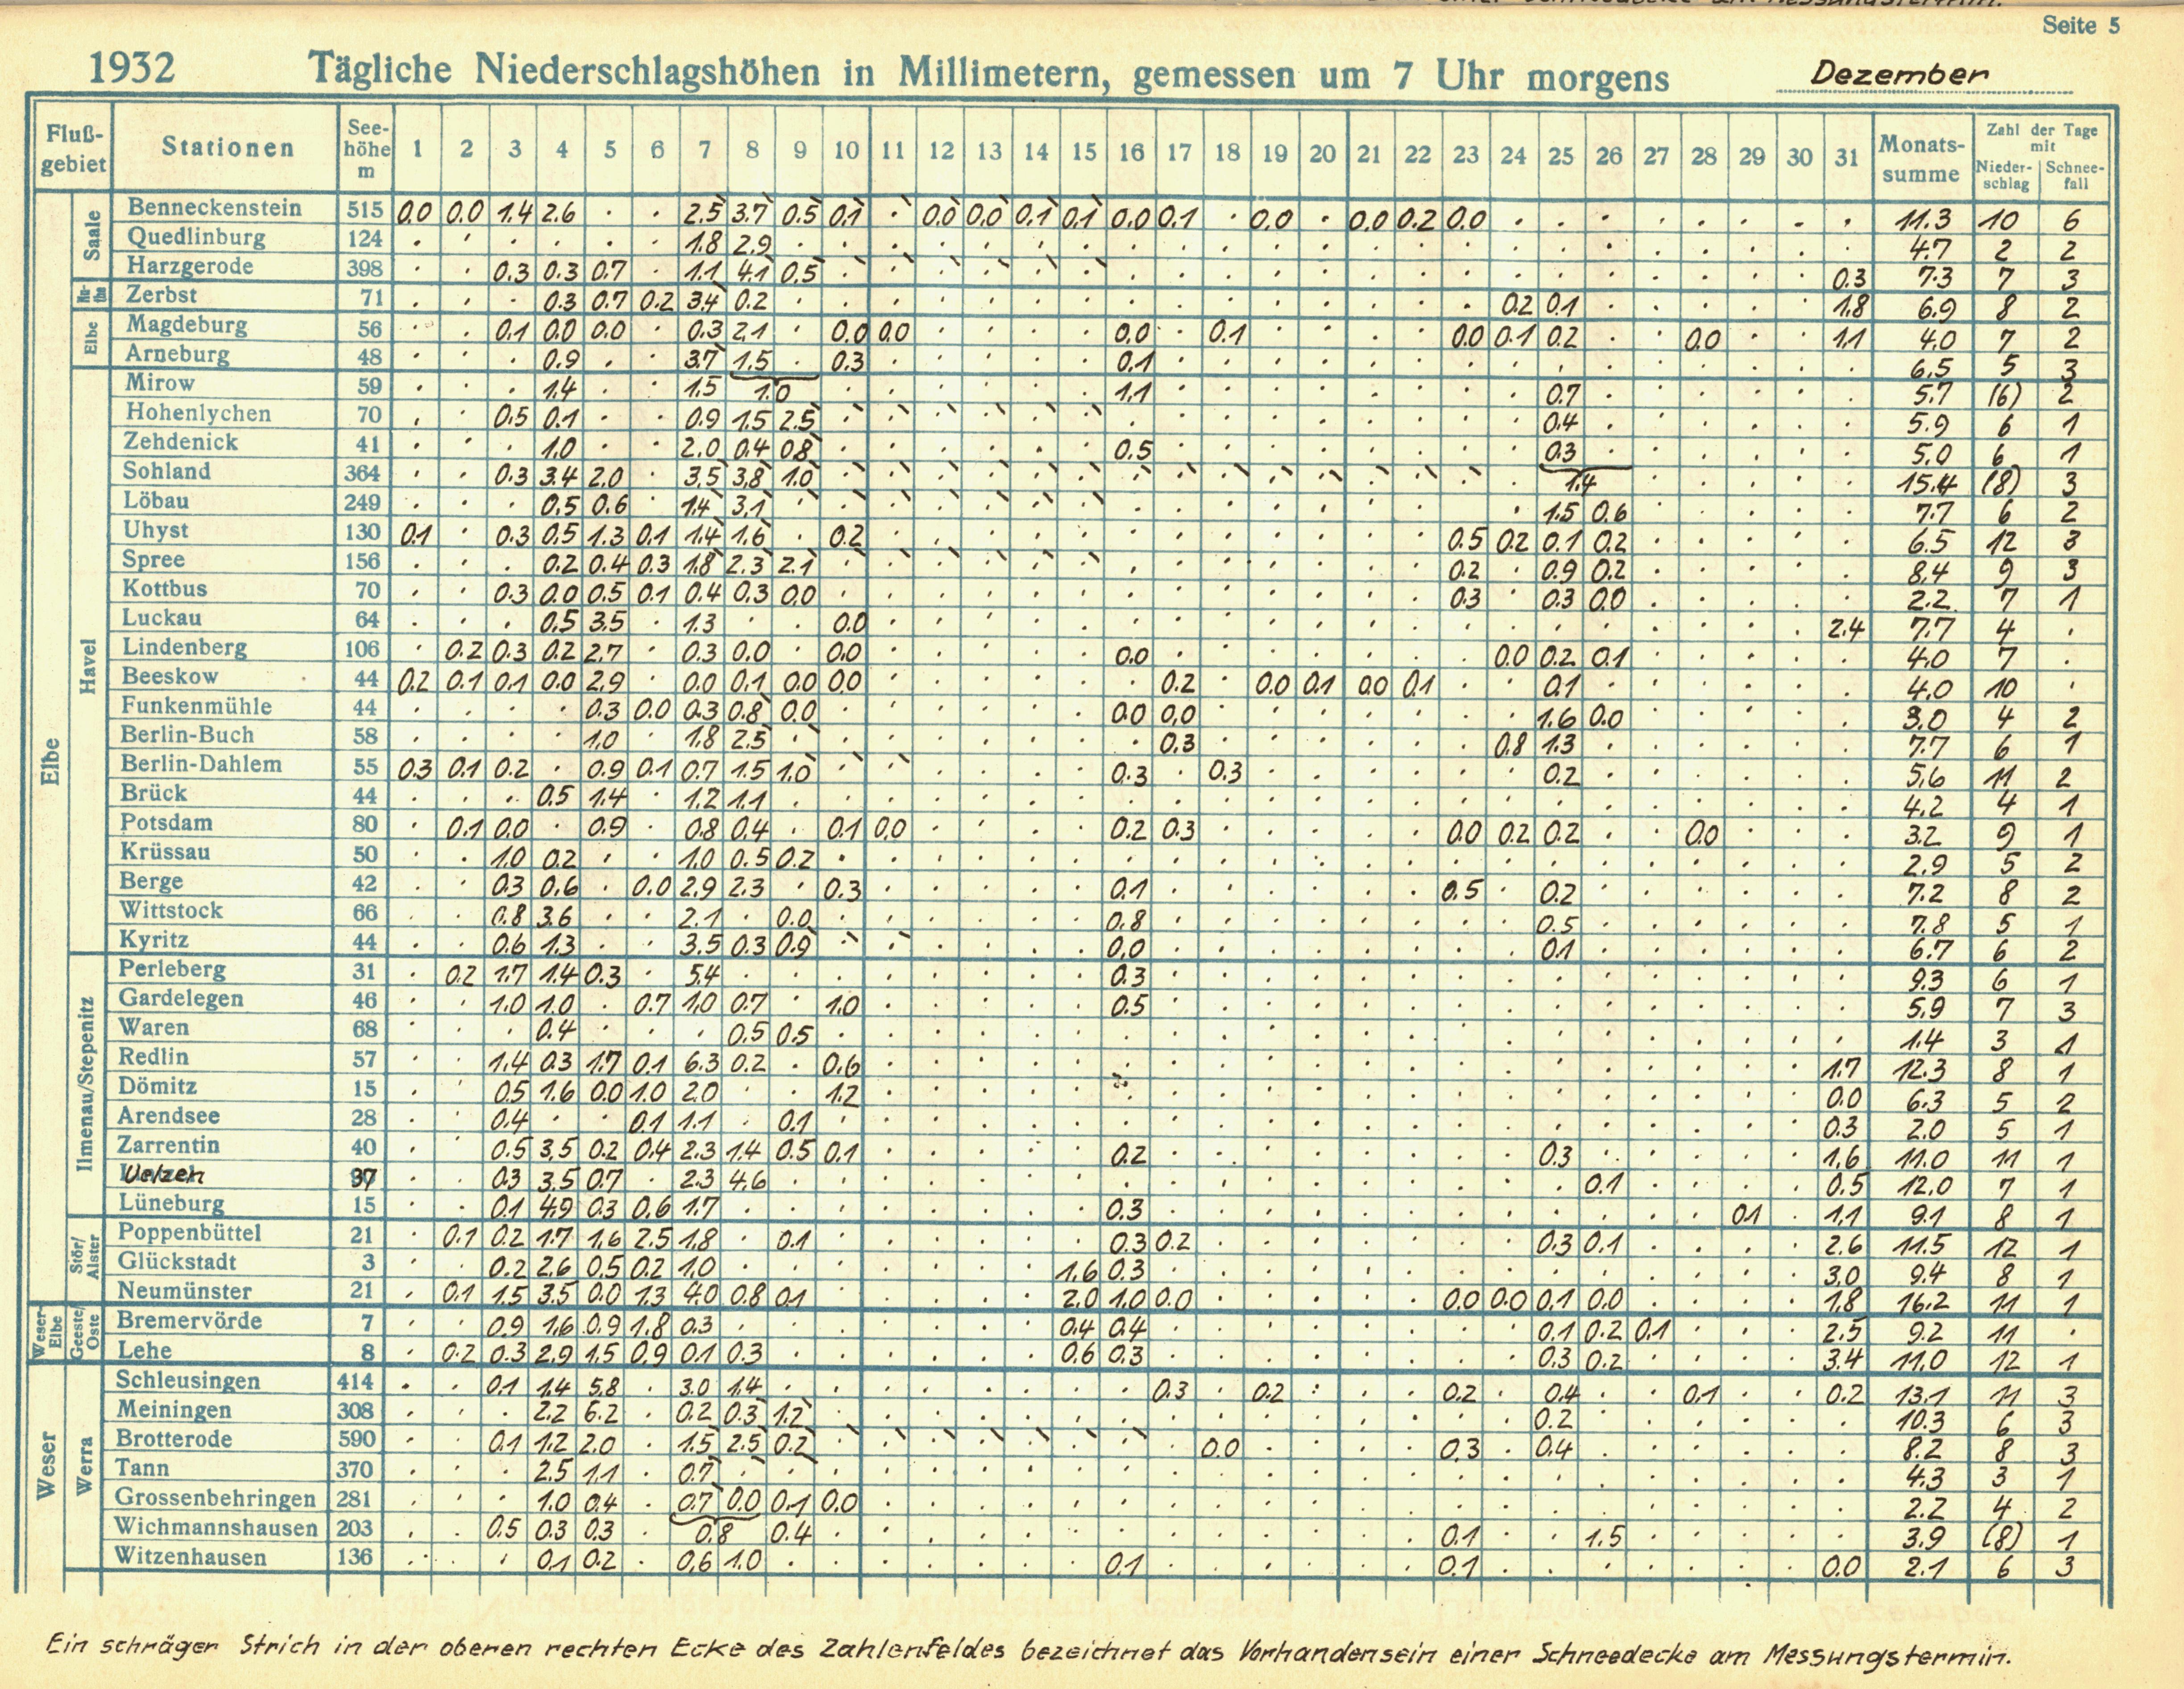 Seite 5
1932 Tägliche Niederschlagshöhen in Millimetern, gemessen um 7 Uhr morgens Dezember
Fluß-gebiet Stationen See-höhe m 1 2 3 4 5 6 7 8 9 10 11 12 13 14 15 16 17 18 19 20 21 22 23 24 25 26 27 28 29 30 31 Monats-summe Zahl der Tage mit Nieder-schlag Schnee-fall
Elbe
Saale
Benneckenstein 515 0.0 0.0 1.4 2.6 . . 2.5 3.7 0.5 0.1 . 0.0 0.0 0.1 0.1 0.0 0.1 . 0.0 . 0.0 0.2 0.0 . . . . . . . . 11.3 10 6
Quedlinburg 124 . . . . . . 1.8 2.9 . . . . . . . . . . . . . . . . . . . . . . . 4.7 2 2
Harzgerode 398 . . 0.3 0.3 0.7 . 1.1 4.1 0.5 . . . . . . . . . . . . . . . . . . . . . 0.3 7.3 7 3
Zerbst 71 . . . 0.3 0.7 0.2 3.4 0.2 . . . . . . . . . . . . . . . 0.2 0.1 . . . . . 1.8 6.9 8 2
Elbe
Magdeburg 56 . . 0.1 0.0 0.0 . 0.3 2.1 . 0.0 0.0 . . . . 0.0 . 0.1 . . . . 0.0 0.1 0.2 . . 0.0 . . 1.1 4.0 7 2
Arneburg 48 . . . 0.9 . . 3.7 1.5 . 0.3 . . . . . 0.1 . . . . . . . . . . . . . . . 6.5 5 3
Havel
Mirow 59 . . . 1.4 . . 1.5 1.0 . . . . . . 1.1 . . . . . . . . 0.7 . . . . . . 5.7 (6) 2
Hohenlychen 70 . . 0.5 0.1 . . 0.9 1.5 2.5 . . . . . . . . . . . . . . . 0.4 . . . . . . 5.9 6 1
Zehdenick 41 . . . 1.0 . . 2.0 0.4 0.8 . . . . . . 0.5 . . . . . . . . 0.3 . . . . . . 5.0 6 1
Sohland 364 . . 0.3 3.4 2.0 . 3.5 3.8 1.0 . . . . . . . . . . . . . . . 1.4 . . . . . 15.4 (8) 3
Löbau 249 . . . 0.5 0.6 . 1.4 3.1 . . . . . . . . . . . . . . . . 1.5 0.6 . . . . . 7.7 6 2
Uhyst 130 0.1 . 0.3 0.5 1.3 0.1 1.4 1.6 . 0.2 . . . . . . . . . . . . 0.5 0.2 0.1 0.2 . . . . . 6.5 12 3
Spree 156 . . . 0.2 0.4 0.3 1.8 2.3 2.1 . . . . . . . . . . . . . 0.2 . 0.9 0.2 . . . . . 8.4 9 3
Kottbus 70 . . 0.3 0.0 0.5 0.1 0.4 0.3 0.0 . . . . . . . . . . . . . 0.3 . 0.3 0.0 . . . . . 2.2 7 1
Luckau 64 . . . 0.5 3.5 . 1.3 . . 0.0 . . . . . . . . . . . . . . . . . . . . 2.4 7.7 4 .
Lindenberg 106 . 0.2 0.3 0.2 2.7 . 0.3 0.0 . 0.0 . . . . . 0.0 . . . . . . . 0.0 0.2 0.1 . . . . . 4.0 7 .
Beeskow 44 0.2 0.1 0.1 0.0 2.9 . 0.0 0.1 0.0 0.0 . . . . . . 0.2 . 0.0 0.1 0.0 0.1 . . 0.1 . . . . . . 4.0 10 .
Funkenmühle 44 . . . . 0.3 0.0 0.3 0.8 0.0 . . . . . . 0.0 0.0 . . . . . . . 1.6 0.0 . . . . . 3.0 4 2
Berlin-Buch 58 . . . . 1.0 . 1.8 2.5 . . . . . . . . 0.3 . . . . . . 0.8 1.3 . . . . . . 7.7 6 1
Berlin-Dahlem 55 0.3 0.1 0.2 . 0.9 0.1 0.7 1.5 1.0 . . . . . . 0.3 . 0.3 . . . . . . 0.2 . . . . . . 5.6 11 2
Brück 44 . . . 0.5 1.4 . 1.2 1.1 . . . . . . . . . . . . . . . . . . . . . . . 4.2 4 1
Potsdam 80 . 0.1 0.0 . 0.9 . 0.8 0.4 . 0.1 0.0 . . . . 0.2 0.3 . . . . . 0.0 0.2 0.2 . . 0.0 . . . 3.2 9 1
Krüssau 50 . . 1.0 0.2 . . 1.0 0.5 0.2 . . . . . . . . . . . . . . . . . . . . . . 2.9 5 2
Berge 42 . . 0.3 0.6 . 0.0 2.9 2.3 . 0.3 . . . . . 0.1 . . . . . . 0.5 . 0.2 . . . . . . 7.2 8 2
Wittstock 66 . . 0.8 3.6 . . 2.1 . 0.0 . . . . . . 0.8 . . . . . . . . 0.5 . . . . . . 7.8 5 1
Kyritz 44 . . 0.6 1.3 . . 3.5 0.3 0.9 . . . . . . 0.0 . . . . . . . . 0.1 . . . . . . 6.7 6 2
Ilmenau/Stepenitz
Perleberg 31 . 0.2 1.7 1.4 0.3 . 5.4 . . . . . . . . 0.3 . . . . . . . . . . . . . . . 9.3 6 1
Gardelegen 46 . . 1.0 1.0 . 0.7 1.0 0.7 . 1.0 . . . . . 0.5 . . . . . . . . . . . . . . . 5.9 7 3
Waren 68 . . . 0.4 . . . 0.5 0.5 . . . . . . . . . . . . . . . . . . . . . . 1.4 3 1
Redlin 57 . . 1.4 0.3 1.7 0.1 6.3 0.2 . 0.6 . . . . . . . . . . . . . . . . . . . . 1.7 12.3 8 1
Dömitz 15 . . 0.5 1.6 0.0 1.0 2.0 . . 1.2 . . . . . . . . . . . . . . . . . . . . 0.0 6.3 5 2
Arendsee 28 . . 0.4 . . 0.1 1.1 . 0.1 . . . . . . . . . . . . . . . . . . . . . 0.3 2.0 5 1
Zarrentin 40 . . 0.5 3.5 0.2 0.4 2.3 1.4 0.5 0.1 . . . . . 0.2 . . . . . . . . 0.3 . . . . . 1.6 11.0 11 1
Uelzen 37 . . 0.3 3.5 0.7 . 2.3 4.6 . . . . . . . . . . . . . . . . . 0.1 . . . . 0.5 12.0 7 1
Lüneburg 15 . . 0.1 4.9 0.3 0.6 1.7 . . . . . . . . 0.3 . . . . . . . . . . . . 0.1 . 1.1 9.1 8 1
Stör/Alster
Poppenbüttel 21 . 0.1 0.2 1.7 1.6 2.5 1.8 . 0.1 . . . . . . 0.3 0.2 . . . . . . . 0.3 0.1 . . . . 2.6 11.5 12 1
Glückstadt 3 . . 0.2 2.6 0.5 0.2 1.0 . . . . . . . 1.6 0.3 . . . . . . . . . . . . . . 3.0 9.4 8 1
Neumünster 21 . 0.1 1.5 3.5 0.0 1.3 4.0 0.8 0.1 . . . . . 2.0 1.0 0.0 . . . . . 0.0 0.0 0.1 0.0 . . . . 1.8 16.2 11 1
Weser-Elbe
Geeste/Oste
Bremervörde 7 . . 0.9 1.6 0.9 1.8 0.3 . . . . . . . 0.4 0.4 . . . . . . . . 0.1 0.2 0.1 . . . 2.5 9.2 11 .
Lehe 8 . 0.2 0.3 2.9 1.5 0.9 0.1 0.3 . . . . . . 0.6 0.3 . . . . . . . . 0.3 0.2 . . . . 3.4 11.0 12 1
Weser
Werra
Schleusingen 414 . . 0.1 1.4 5.8 . 3.0 1.4 . . . . . . . . 0.3 . 0.2 . . . 0.2 . 0.4 . . 0.1 . . 0.2 13.1 11 3
Meiningen 308 . . . 2.2 6.2 . 0.2 0.3 1.2 . . . . . . . . . . . . . . . 0.2 . . . . . . 10.3 6 3
Brotterode 590 . . 0.1 1.2 2.0 . 1.5 2.5 0.2 . . . . . . . . 0.0 . . . . 0.3 . 0.4 . . . . . . 8.2 8 3
Tann 370 . . . 2.5 1.1 . 0.7 . . . . . . . . . . . . . . . . . . . . . . . . 4.3 3 1
Grossenbehringen 281 . . . 1.0 0.4 . 0.7 0.0 0.1 0.0 . . . . . . . . . . . . . . . . . . . . . 2.2 4 2
Wichmannshausen 203 . . 0.5 0.3 0.3 . 0.8 0.4 . . . . . . . . . . . . . 0.1 . . 1.5 . . . . . 3.9 (8) 1
Witzenhausen 136 . . . 0.1 0.2 . 0.6 1.0 . . . . . . . 0.1 . . . . . . 0.1 . . . . . . . 0.0 2.1 6 3
Ein schräger Strich in der oberen rechten Ecke des Zahlenfeldes bezeichnet das Vorhandensein einer Schneedecke am Messungstermin.